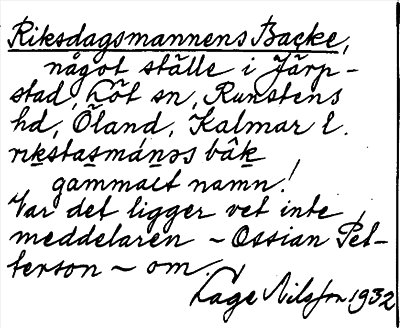 Riksdagsmannens Backe,
något ställe i Järp-
stad, Löt sn, Runstens
hd, Öland, Kalmar l.
rıkstasmánəs bâk
gammalt namn!
Var det ligger vet inte
meddelaren – Ossian Pet-
terson – om.
Lage Nilsson 1932